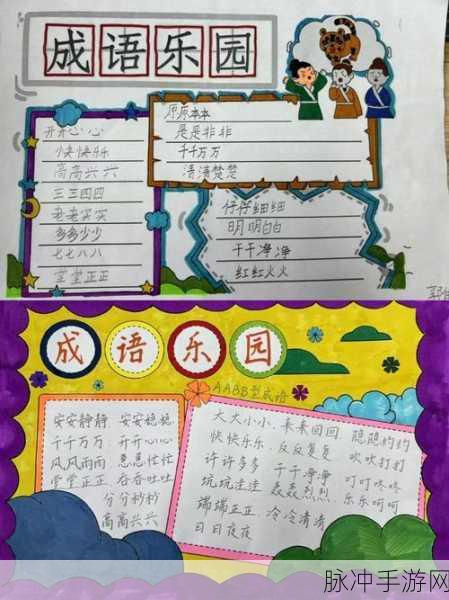 成语乐园
开开心心
快快乐乐
高高兴兴
三三四四
老老实实
多多少少
七七八八
堂堂正正
原原本本
是是非非
千千万万
清清楚楚
仔仔细细
明明白白
干干净净
红红火火
成语乐园
AABB型成语
安安静静 安安稳稳
千千万万 开开心心
风风雨雨 急急忙忙
堂堂正正 吞吞吐吐
分分秒秒
高高兴兴
大大小小、来来回回 隐隐约约
快快乐乐、反反复复 吹吹打打
许许多多 干干净净 叮叮咚咚
坑坑洼洼 轰轰烈烈 乐乐呵呵
端端正正、冷冷清清
日日夜夜
脉冲手游网